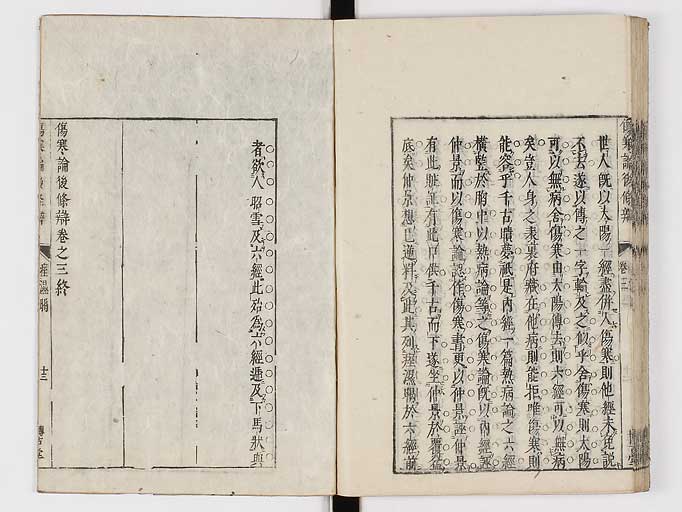 世人既以太陽一經盡併入傷寒則他經未免說
不去遂以傳之一字輪及之似乎舍傷寒則太陽
可以無病舍傷寒由太陽傳去則六經可以無病
矣豈人身之表裏府藏在他病則能拒唯傷寒則
能容乎千古聵夢祇是內經一篇熱病論之六經
橫豎於胸中以熱病論等之傷寒論既以內經誣
仲景而以傷寒論認作傷寒書更以仲景誣仲景
有此賍証有此口供千古而下遂坐仲景於覆盆
底矣仲景想已逆料及此其列痙濕暍於六經前
者欲人昭雪及六經此殆為六經遞及下馬狀與
傷寒論後條辨卷之三終
傷寒論後條辨
卷三
痙濕暍
十三